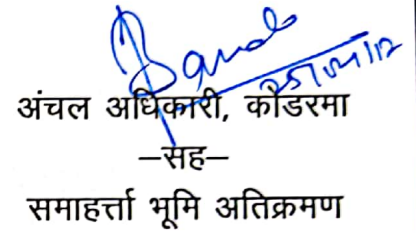 25/04/12
अंचल अधिकारी, कोडरमा
–सह–
समाहर्त्ता भूमि अतिक्रमण